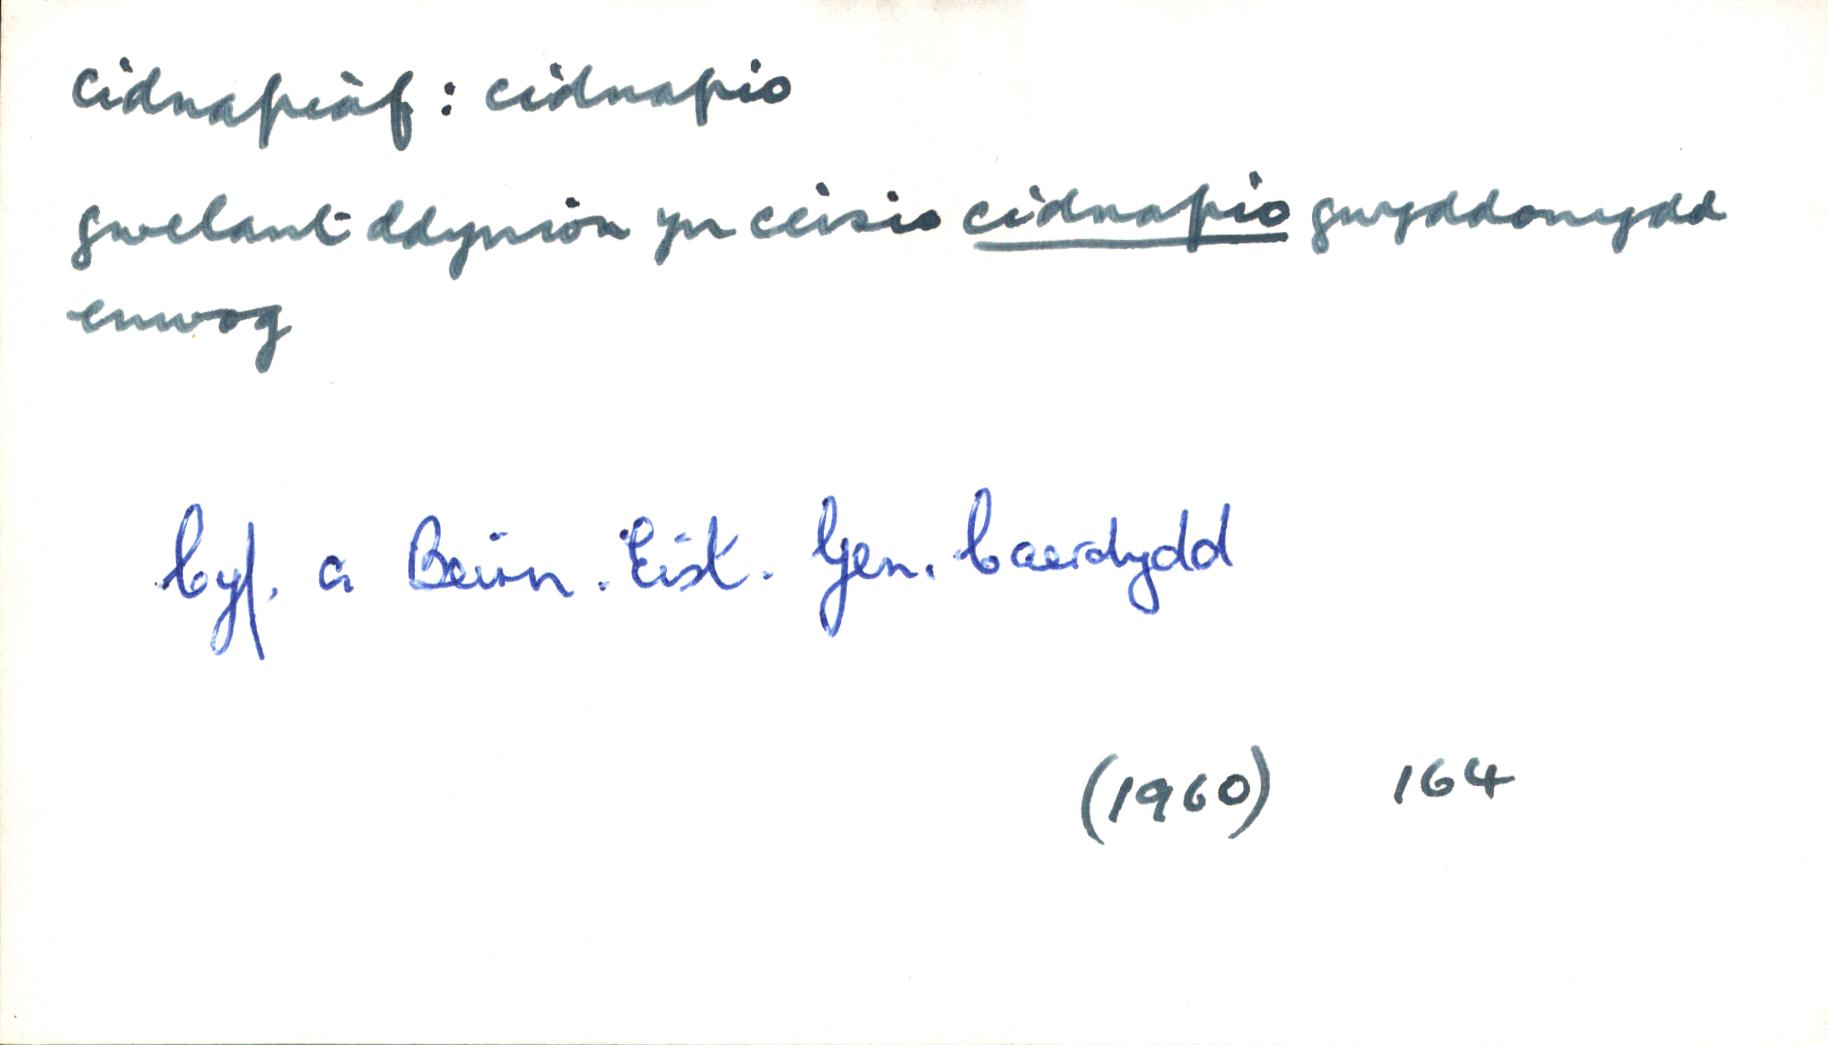 cidnapiaf: cidnapio
gwelant ddynion yn ceisio cidnapio gwyddonydd
enwog
Cyf. a Beirn. Eist. Gen. Caerdydd
(1960) 164